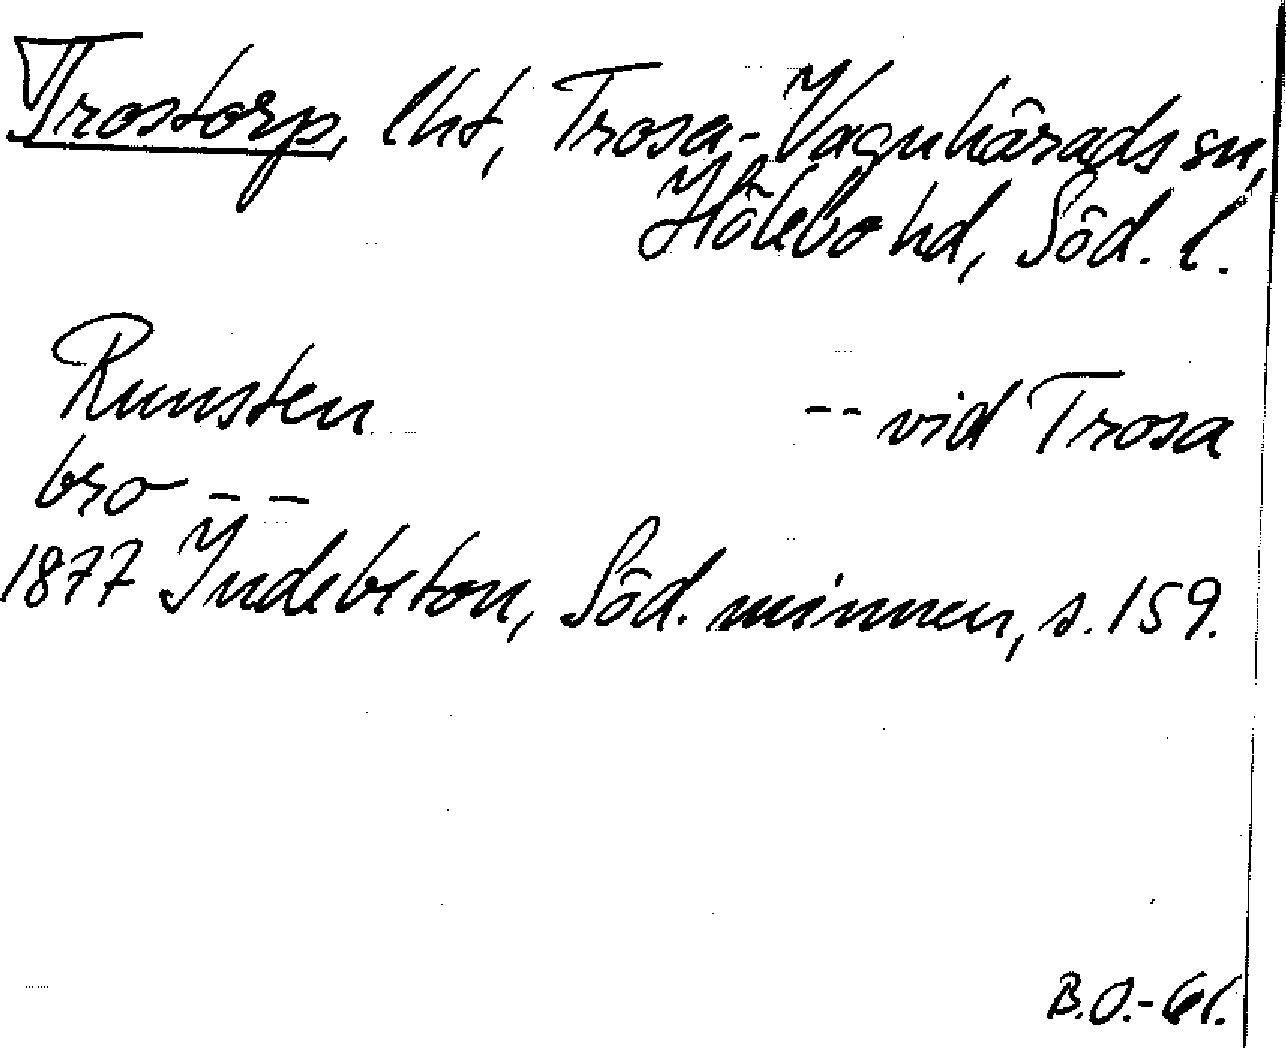 Trostorp, lht, Trosa-Vagnhärads sn,
Hölebo hd, Söd. l.
Runsten -- vid Trosa
bro - -
1877 Indebetou, Söd. minnen, s. 159.
B.O.-61.